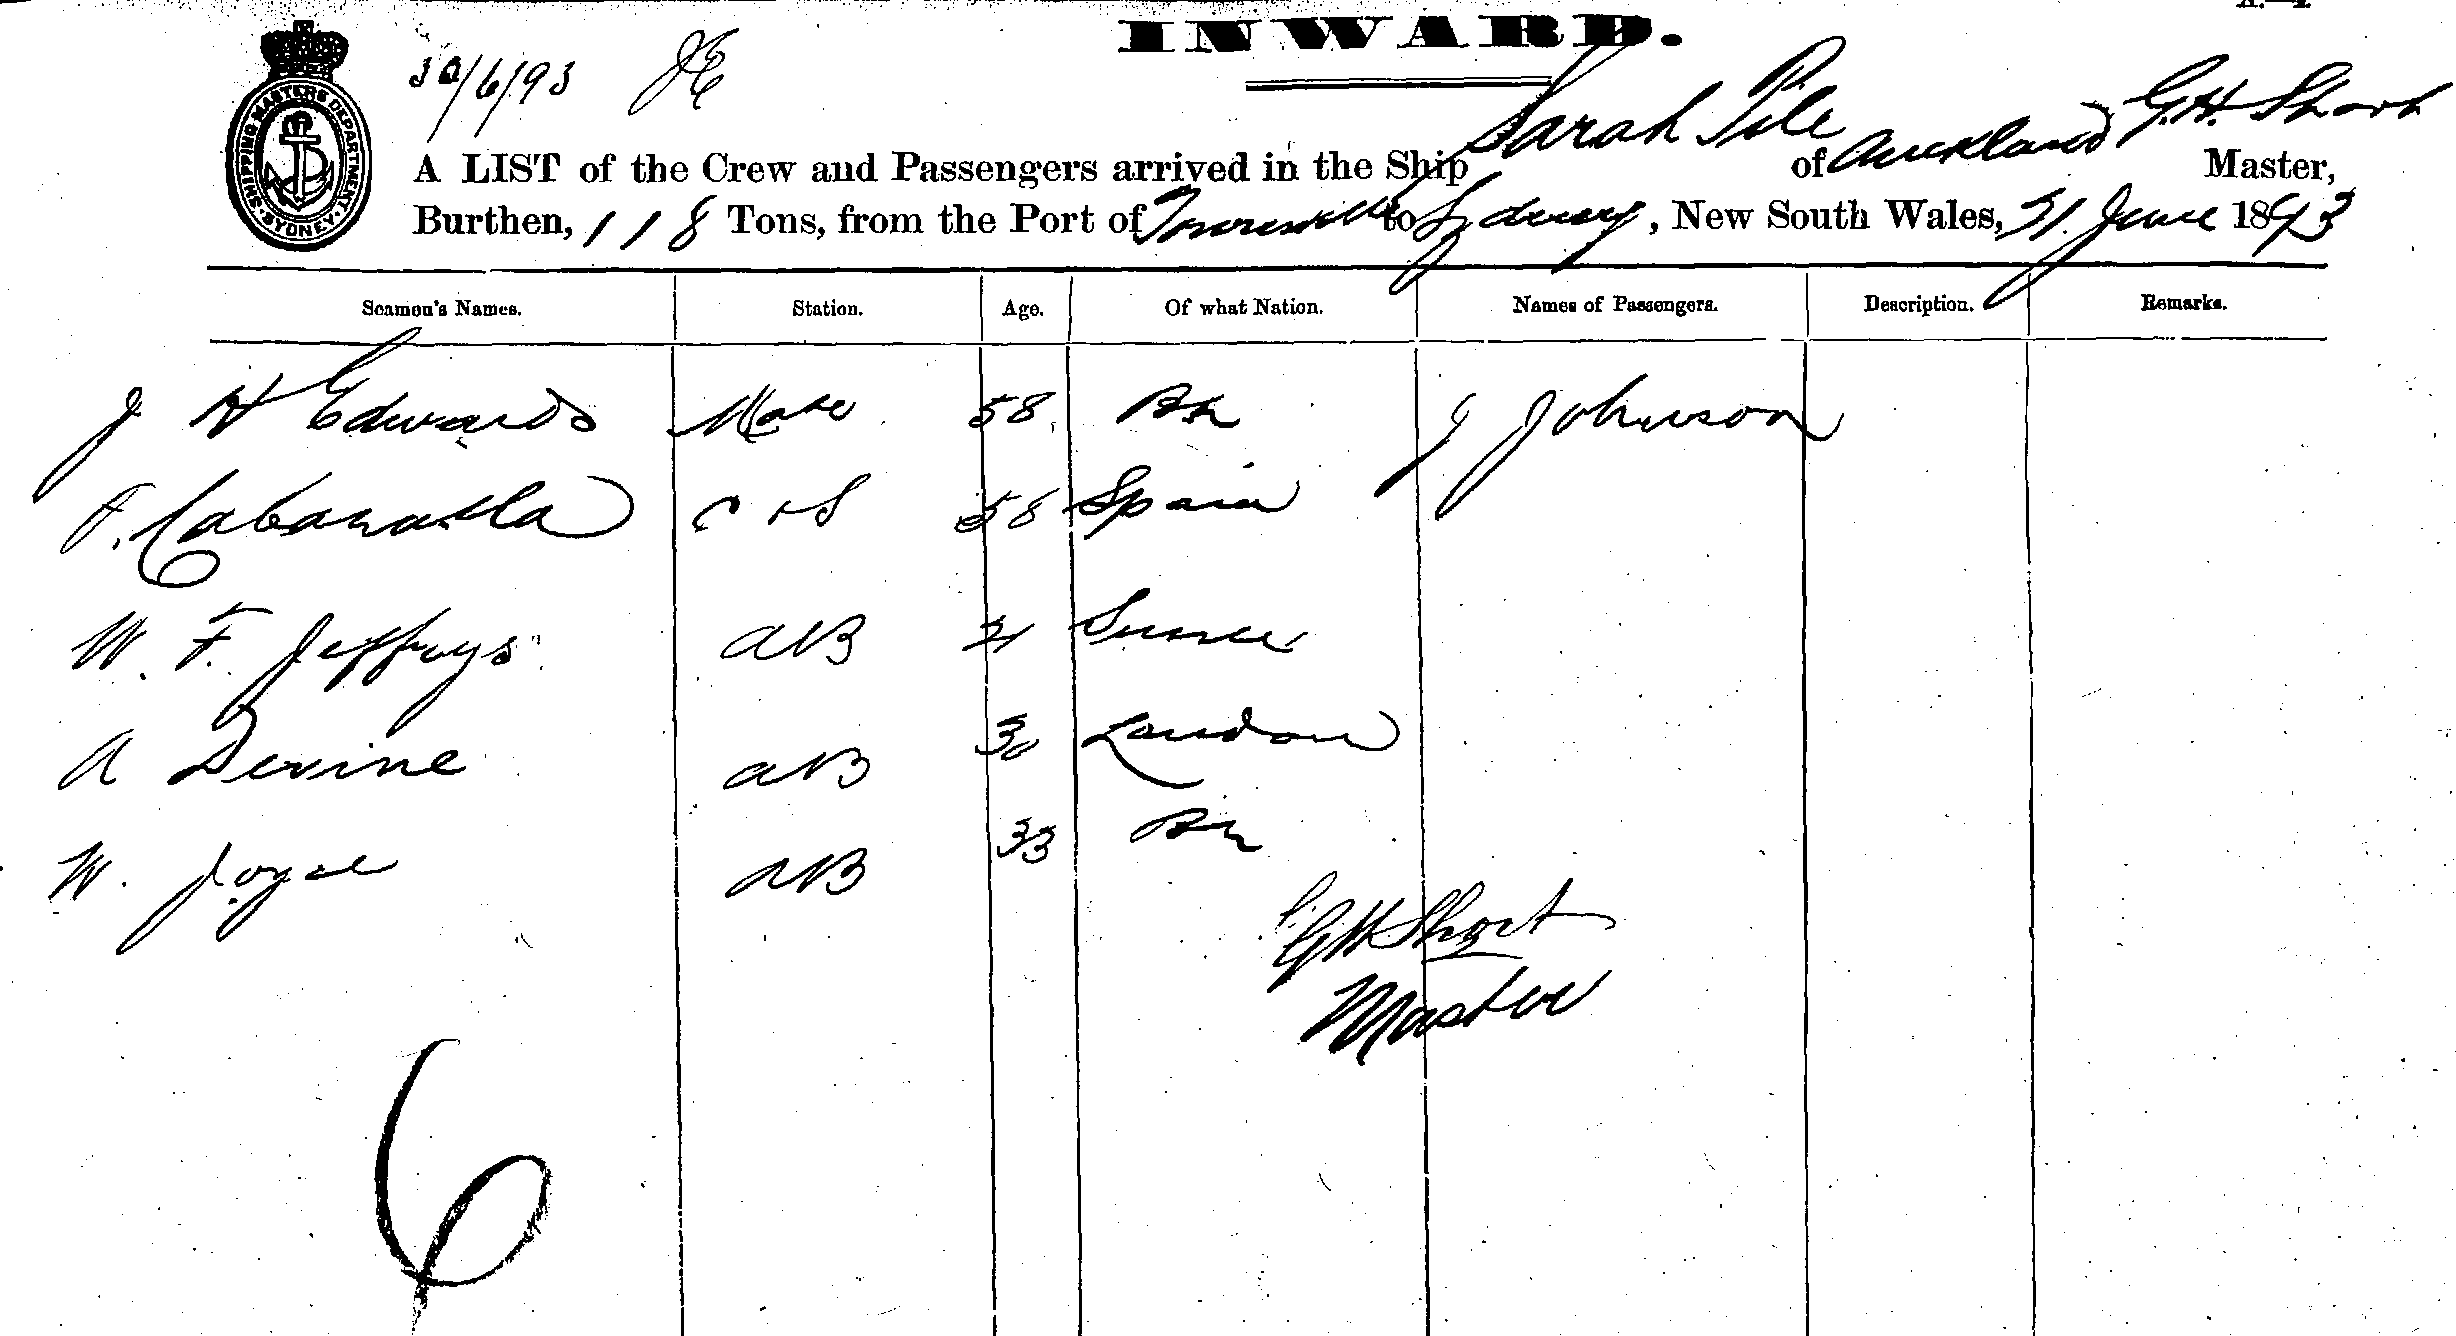 INWARD.
30/6/93 JE
SHIPPING MASTERS DEPARTMENT SYDNEY
A LIST of the Crew and Passengers arrived in the Ship Sarah Pile of Auckland G.H. Short Master,
Burthen, 118 Tons, from the Port of Townsville to Sydney, New South Wales, June 1893
Seamen's Names. Station. Age. Of what Nation. Names of Passengers. Description. Remarks.
J H Edwards Mate 58 Br J Johnson
F. C & S 58 Spain
W. F. Jeffrys AB 21
A Devine AB 30 London
W. Joyce AB 33 Br
GH Short
Master
6